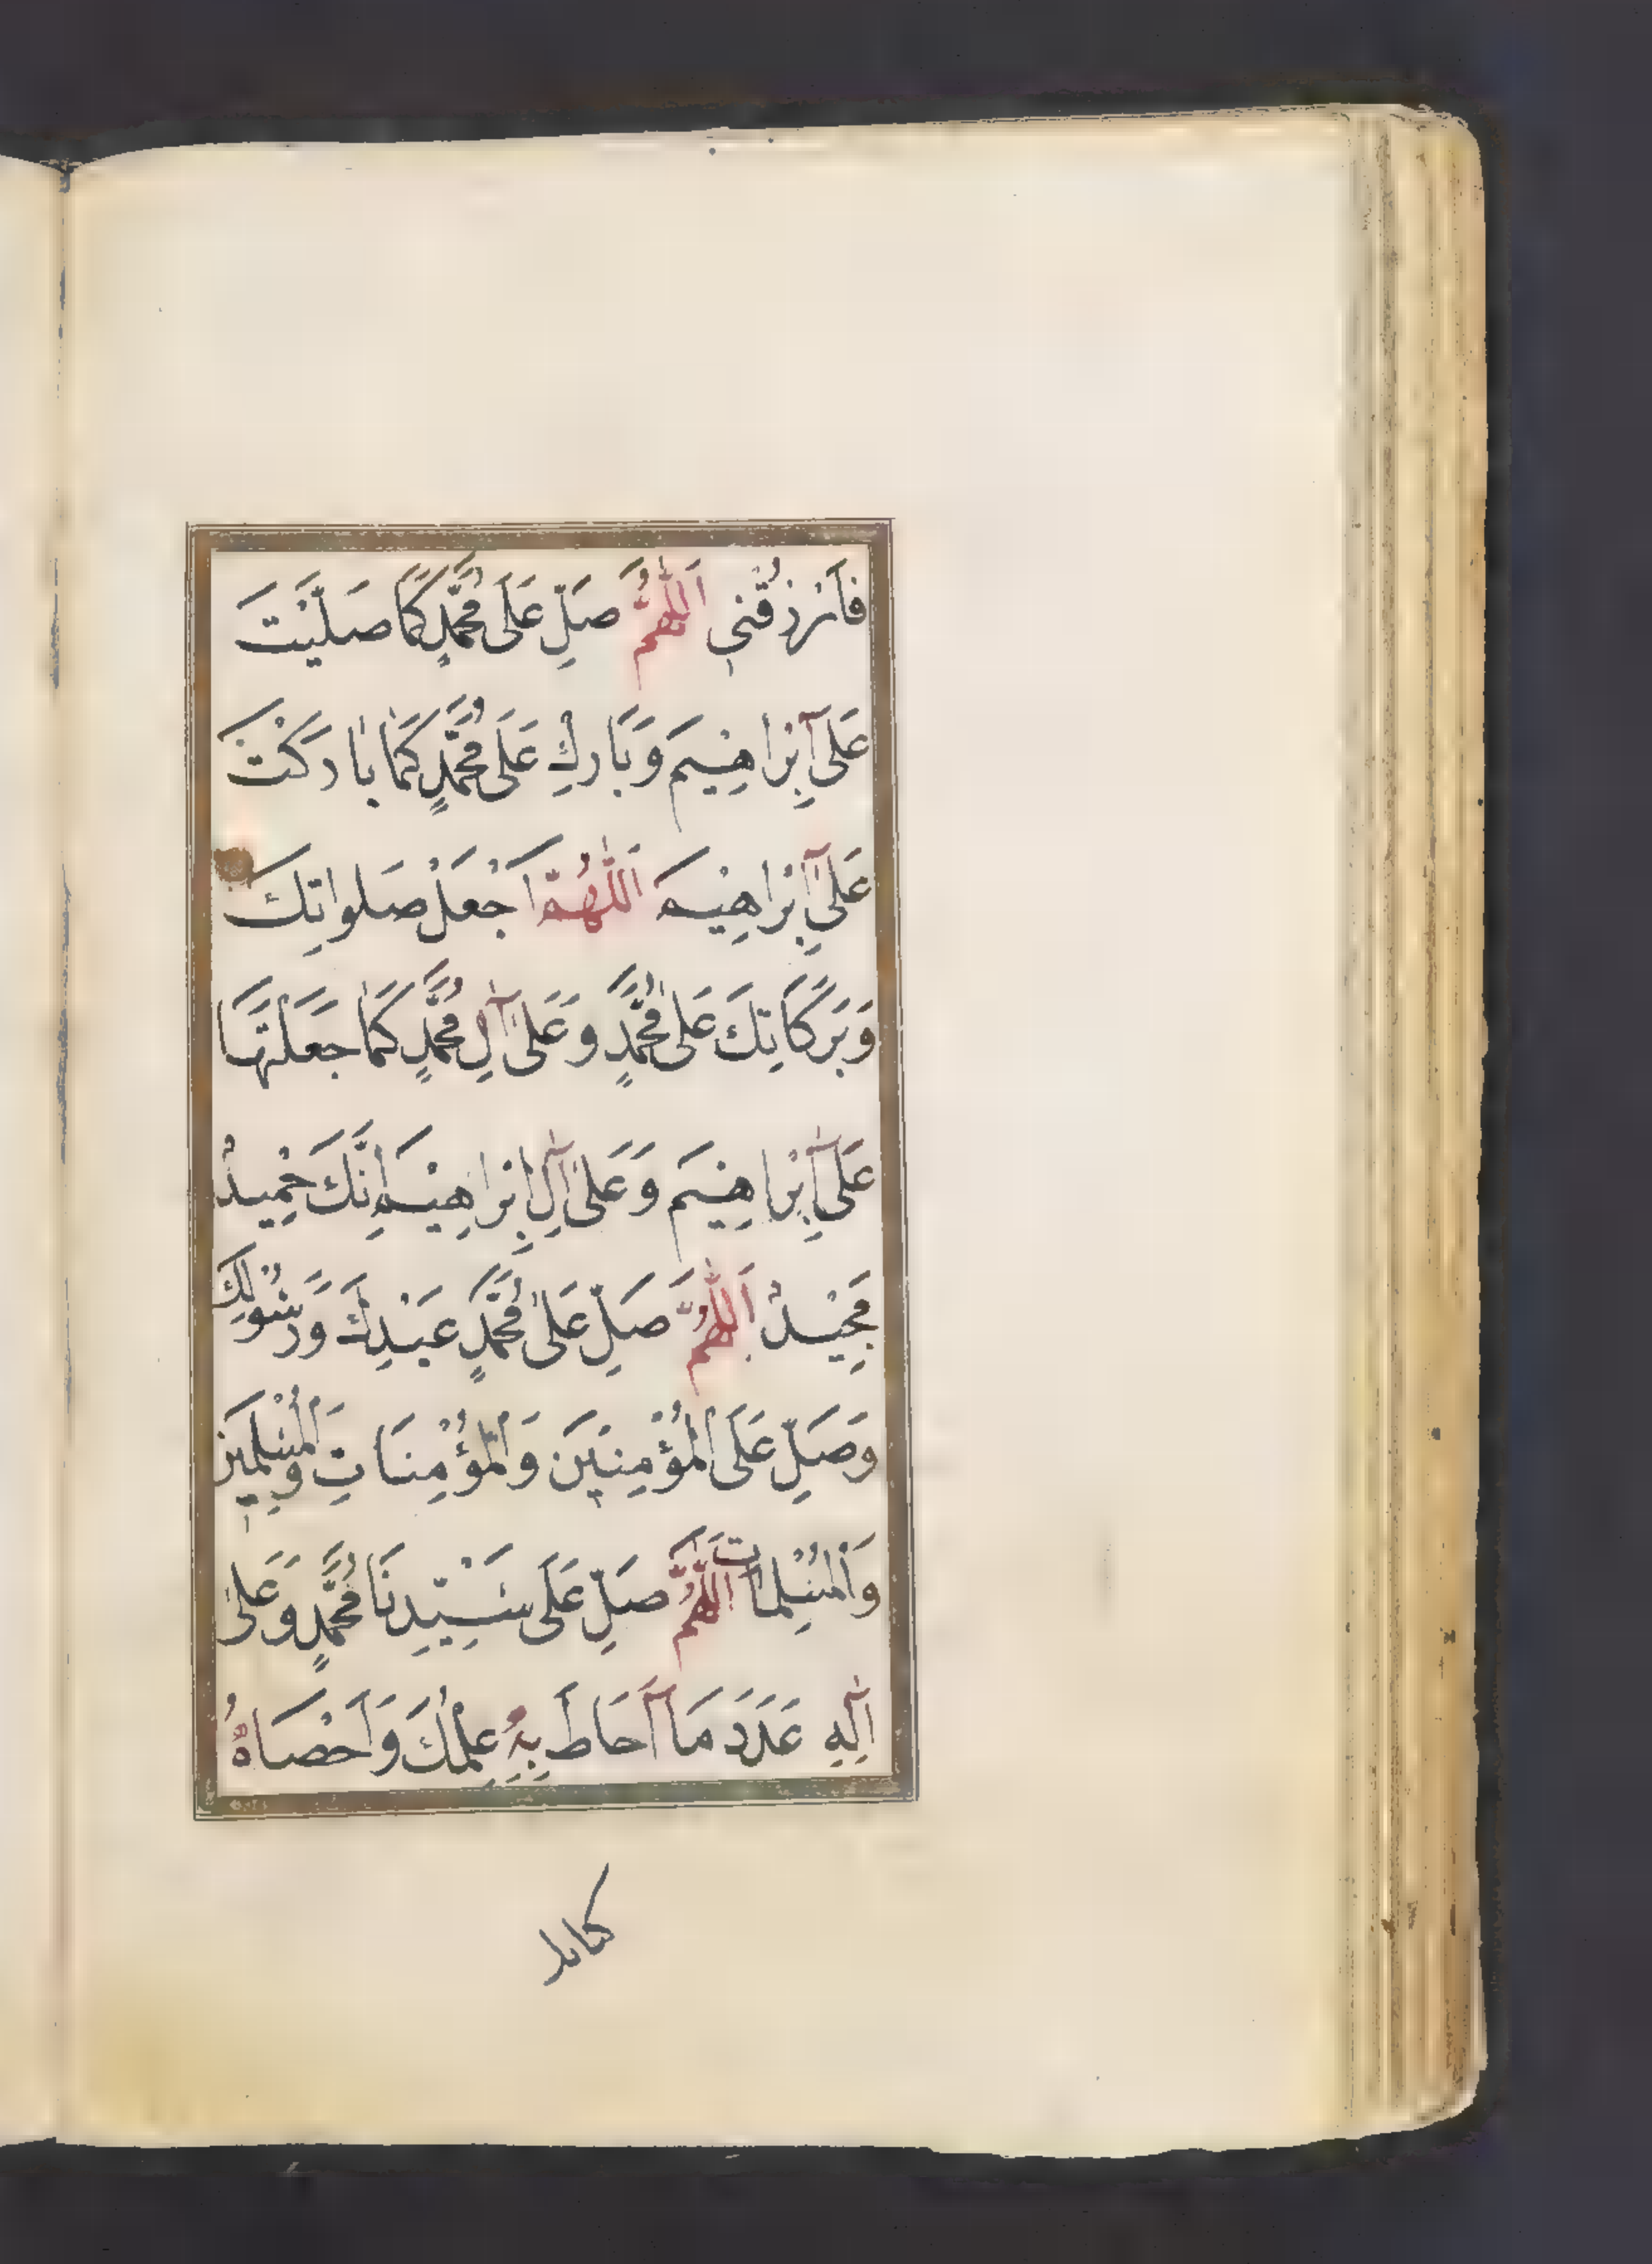 فَارْزُقْنِي اَللّٰهُمَّ صَلِّ عَلَى مُحَمَّدٍ كَمَا صَلَّيْتَ
عَلَى اِبْرَاهِيْمَ وَبَارِكْ عَلَى مُحَمَّدٍ كَمَا بَارَكْتَ
عَلَى اِبْرَاهِيْمَ اَللّٰهُمَّ اجْعَلْ صَلَوَاتِكَ
وَبَرَكَاتِكَ عَلَى مُحَمَّدٍ وَعَلَى آلِ مُحَمَّدٍ كَمَا جَعَلْتَهَا
عَلَى اِبْرَاهِيْمَ وَعَلَى آلِ اِبْرَاهِيْمَ اِنَّكَ حَمِيدٌ
مَجِيْدٌ اَللّٰهُمَّ صَلِّ عَلَى مُحَمَّدٍ عَبْدِكَ وَرَسُولِكَ
وَصَلِّ عَلَى الْمُؤْمِنِيْنَ وَالْمُؤْمِنَاتِ وَالْمُسْلِمِيْنَ
وَالْمُسْلِمَاتِ اَللّٰهُمَّ صَلِّ عَلَى سَيِّدِنَا مُحَمَّدٍ وَعَلَى
اٰلِهِ عَدَدَ مَا اَحَاطَ بِهِ عِلْمُكَ وَاَحْصَاهُ
كتابك